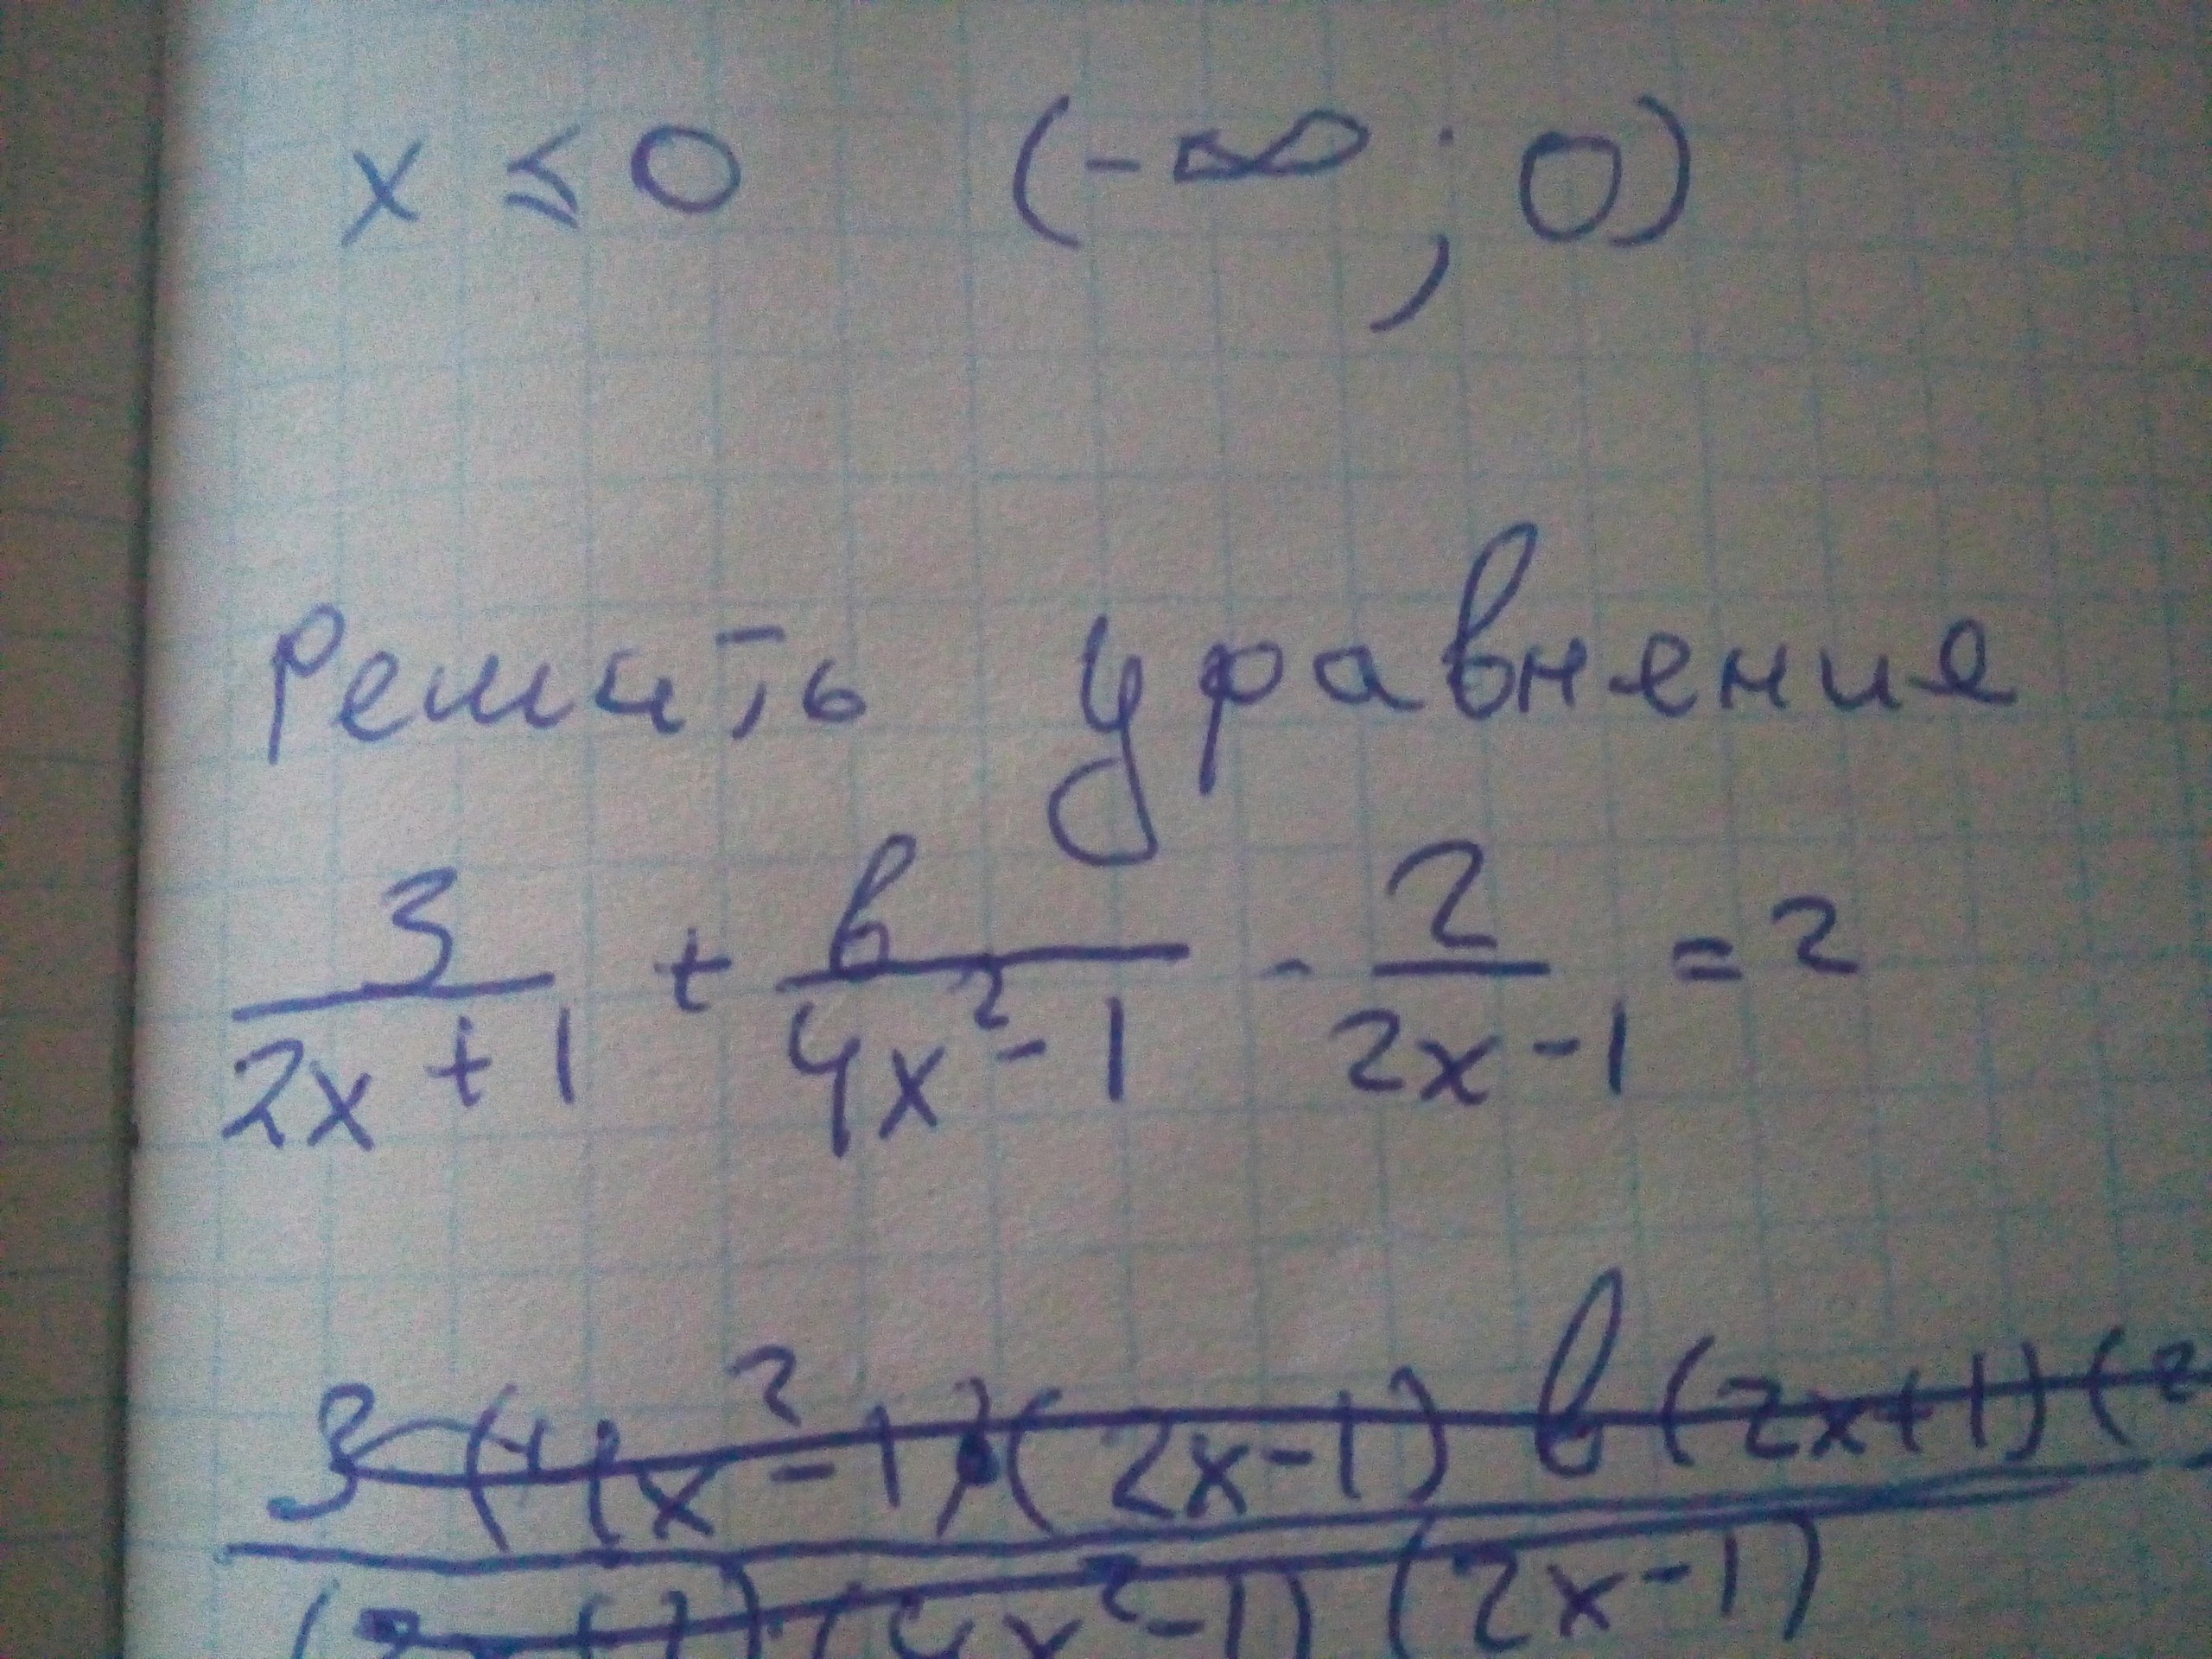 x ⩽ 0 (-∞; 0)
Решить уравнение
3/(2x+1) + 6/(4x²-1) - 2/(2x-1) = 2
3(4x²-1)(2x-1) 6(2x+1)(2
(2x+1)(4x²-1)(2x-1)